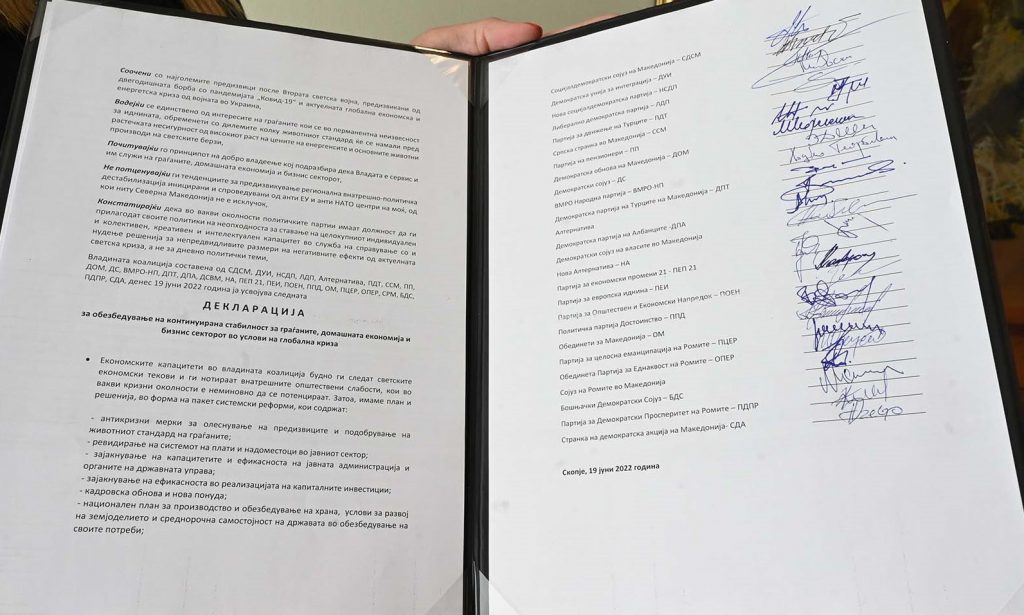 Соочени со најголемите предизвици после Втората светска војна, предизвикани од
двегодишната борба со пандемијата „Ковид-19“ и актуелната глобална економска и
енергетска криза од војната во Украина,
Водејќи се единствено од интересите на граѓаните кои се во перманентна неизвесност
за иднината, обременети со дилемите колку животниот стандард ќе се намали пред
растечката несигурност од високиот раст на цените на енергенсите и основните животни
производи на светските берзи,
Почитувајќи го принципот на добро владеење кој подразбира дека Владата е сервис и
им служи на граѓаните, домашната економија и бизнис секторот,
Не потценувајќи ги тенденциите за предизвикување регионална внатрешно-политичка
дестабилизација иницирани и спроведувани од анти ЕУ и анти НАТО центри на моќ, од
кои ниту Северна Македонија не е исклучок,
Констатирајќи дека во вакви околности политичките партии имаат должност да ги
прилагодат своите политики на неопходноста за ставање на целокупниот индивидуален
и колективен, креативен и интелектуален капацитет во служба на справување со и
нудење решенија за непредвидливите размери на негативните ефекти од актуелната
светска криза, а не за дневно политички теми,
Владината коалиција составена од СДСМ, ДУИ, НСДП, ЛДП, Алтернатива, ПДТ, ССМ, ПП,
ДОМ, ДС, ВМРО-НП, ДПТ, ДПА, ДСВМ, НА, ПЕП 21, ПЕИ, ПОЕН, ППД, ОМ, ПЦЕР, ОПЕР, СРМ, БДС,
ПДПР, СДА, денес 19 јуни 2022 година ја усвојува следната
ДЕКЛАРАЦИЈА
за обезбедување на континуирана стабилност за граѓаните, домашната економија и
бизнис секторот во услови на глобална криза
• Економските капацитети во владината коалиција будно ги следат светските
економски текови и ги нотираат внатрешните општествени слабости, кои во
вакви кризни околности е неминовно да се потенцираат. Затоа, имаме план и
решенија, во форма на пакет системски реформи, кои содржат:
- антикризни мерки за олеснување на предизвиците и подобрување на
животниот стандард на граѓаните;
- ревидирање на системот на плати и надоместоци во јавниот сектор;
- зајакнување на капацитетите и ефикасноста на јавната администрација и
органите на државната управа;
- зајакнување на ефикасноста во реализацијата на капиталните инвестиции;
- кадровска обнова и нова понуда;
- национален план за производство и обезбедување на храна, услови за развој
на земјоделието и среднорочна самостојност на државата во обезбедување на
своите потреби;
Социјалдемократски сојуз на Македонија – СДСМ
Демократска унија за интеграција – ДУИ
Нова социјалдемократска партија – НСДП
Либерално демократска партија – ЛДП
Партија за движење на Турците – ПДТ
Српска странка во Македонија – ССМ
Партија на пензионери – ПП
Демократска обнова на Македонија – ДОМ
Демократски сојуз – ДС
ВМРО Народна партија – ВМРО-НП
Демократска партија на Турците на Македонија – ДПТ
Алтернатива
Демократска партија на Албанците -ДПА
Демократски сојуз на власите во Македонија
Нова Алтернатива – НА
Партија за економски промени 21 - ПЕП 21
Партија за европска иднина – ПЕИ
Партија за Општествен и Економски Напредок – ПОЕН
Политичка партија Достоинство – ППД
Обединети за Македонија – ОМ
Партија за целосна еманципација на Ромите – ПЦЕР
Обединета Партија за Еднаквост на Ромите – ОПЕР
Сојуз на Ромите во Македонија
Бошњачки Демократски Сојуз – БДС
Партија за Демократски Просперитет на Ромите – ПДПР
Странка на демократска акција на Македонија- СДА
Скопје, 19 јуни 2022 година